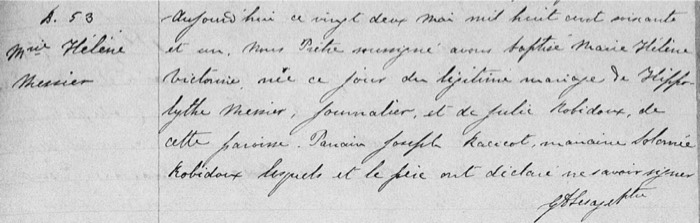 B. 53
Mrie Hélène
Messier
Aujourd'hui ce vingt deux Mai mil huit cent soixante
et un, Nous Prêtre soussigné avons baptisé Marie Hélène
Victorine, née ce jour du légitime mariage de Hippo-
lythe Messier, journalier, et de Julie Robidoux, de
cette paroisse. Parrain Joseph Racicot, marraine Solomée
Robidoux lesquels et le père ont déclaré ne savoir signer
Ptre